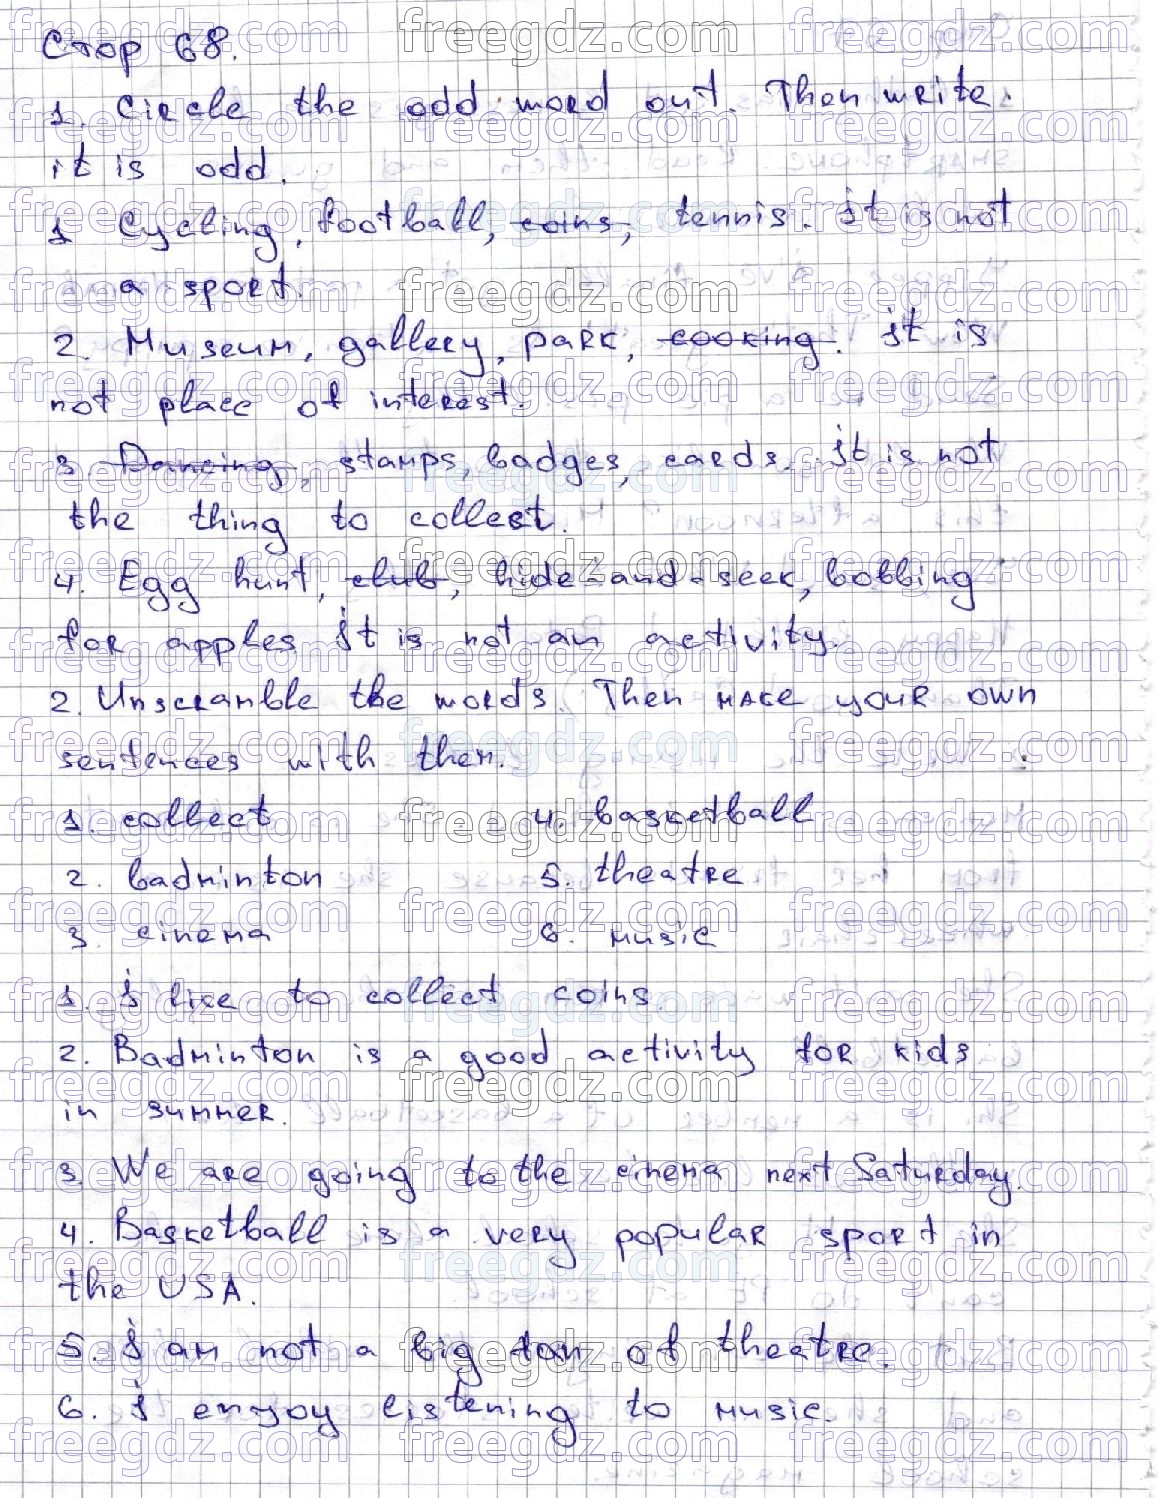 Стор 68.
1. Circle the odd word out. Then write
it is odd.
1 Cycling, football, coins, tennis. It is not
a sport.
2. Museum, gallery, park, cooking. It is
not place of interest.
3 Dancing, stamps, badges, cards. It is not
the thing to collect.
4. Egg hunt, club, hide-and-seek, bobbing
for apples It is not an activity.
2. Unscramble the words. Then make your own
sentences with them.
1. collect 4. basketball
2. badminton 5. theatre
3. cinema 6. music
1. I like to collect coins.
2. Badminton is a good activity for kids
in summer.
3. We are going to the cinema next Saturday.
4. Basketball is a very popular sport in
the USA.
5. I am not a big fan of theatre.
6. I enjoy listening to music.
freegdz.com